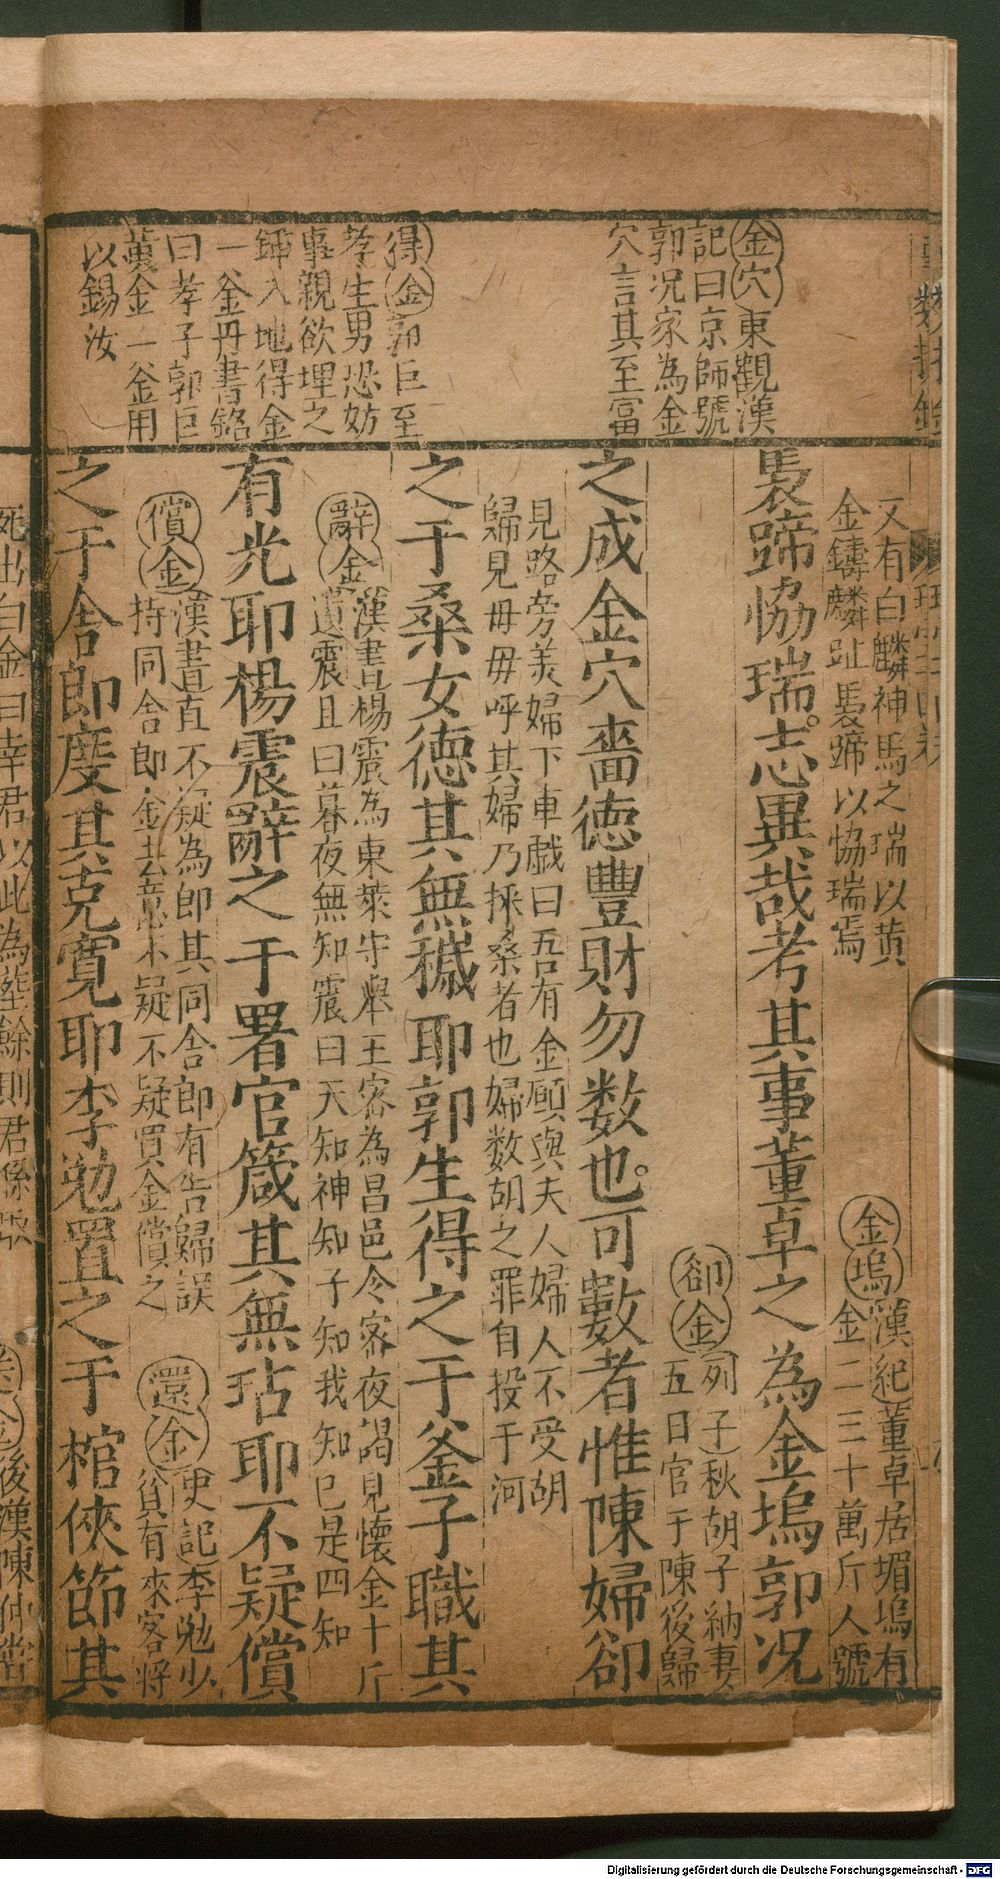 金穴東觀漢
記曰京師號
郭况家為金
穴言其至富
得金郭巨至
孝生男恐妨
事親欲埋之
鍤入地得金
一釜丹書銘
曰孝子郭巨
黄金一釜用
以錫汝
又有白麟神馬之瑞以黄
金鑄麟趾褭蹄以協瑞焉
金塢漢紀董卓居堳塢有
金二三十萬斤人號
褭蹄協瑞志異哉考其事董卓之為金塢郭况
卻金列子秋胡子納妻
五日官于陳後歸
之成金穴嗇德豐財勿数也可數者惟陳婦卻
見路旁美婦下車戯曰吾有金願與夫人婦人不受胡
歸見母母呼其婦乃採桑者也婦数胡之罪自投于河
之于桑女德其無穢耶郭生得之于釜子職其
辭金漢書楊震為東萊守舉王密為昌邑令密夜謁見懷金十斤
遺震且曰暮夜無知震曰天知神知子知我知已是四知
有光耶楊震辭之于署官箴其無玷耶不疑償
償金漢書直不疑為郎其同舍郎有告歸誤
持同舍郎金去意不疑不疑買金償之
還金史記李勉少
貧有來客将
之于舍郎度其克寛耶李勉置之于棺俠節其
死出白金曰幸君以此為塟餘則君係
金後漢陳仲
Digitalisierung gefördert durch die Deutsche Forschungsgemeinschaft - DFG